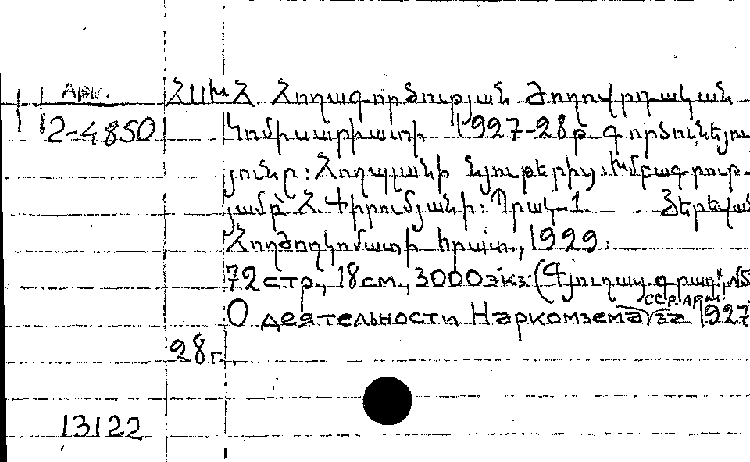 Арм. ՀՍԽՀ Հողագործության Ժողովրդական
2-4850 Կոմիսարիատի 1927-28թ. գործունեյու
յունը: Հողպլանի նյութերից: Խմբագրութ-
յամբ Հ. Փիրումյանի: Պրակ-1 Յերևան
Հողժողկոմատի հրատ., 1929.
72 стр., 18 см., 3000 экз. (Գյուղատ. գրադ.
ССР Арм.
О деятельности Наркомзема за 1927
28 г.
13122